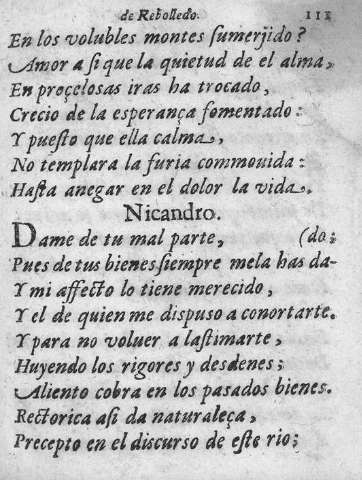 de Rebolledo. 111
En los volubles montes sumerjido?
Amor a si que la quietud de el alma,
En proçelosas iras ha trocado,
Crecio de la esperança fomentado:
Y puesto que ella calma,
No templara la furia commouida:
Hasta anegar en el dolor la vida.
Nicandro.
Dame de tu mal parte, (do;
Pues de tus bienes siempre mela has da-
Y mi affecto lo tiene merecido,
Y el de quien me dispuso a conortarte.
Y para no voluer a lastimarte,
Huyendo los rigores y desdenes;
Aliento cobra en los pasados bienes.
Rectorica asi da naturaleça,
Precepto en el discurso de este rio;